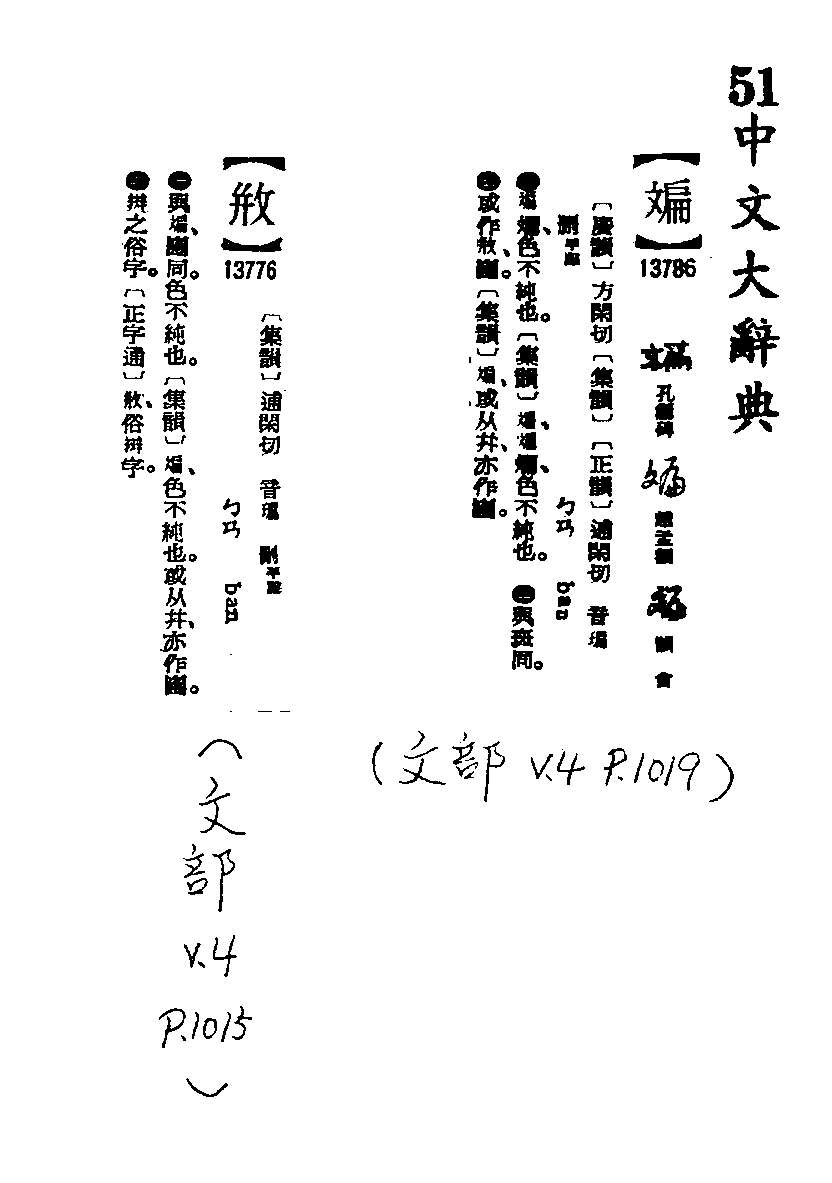 51中文大辭典
【斒】
13786
孔龢碑
趙孟頫
韻會
〔廣韻〕方閑切〔集韻〕〔正韻〕逋閑切 音瑞
ㄅㄢ ban
斕色不純也。〔集韻〕斒、斒斕色不純也。與斑同。
或作㪵、斕。〔集韻〕斒、或从幷、亦作
【㪵】
13776
〔集韻〕逋閑切 音
平聲
ㄅㄢ ban
㊀與斒、同。色不純也。〔集韻〕斒、色不純也。或从幷、亦作
㊁辬之俗字。〔正字通〕㪵、俗辬字。
(文部 V.4 P.1019)
(文部 V.4 P.1015)